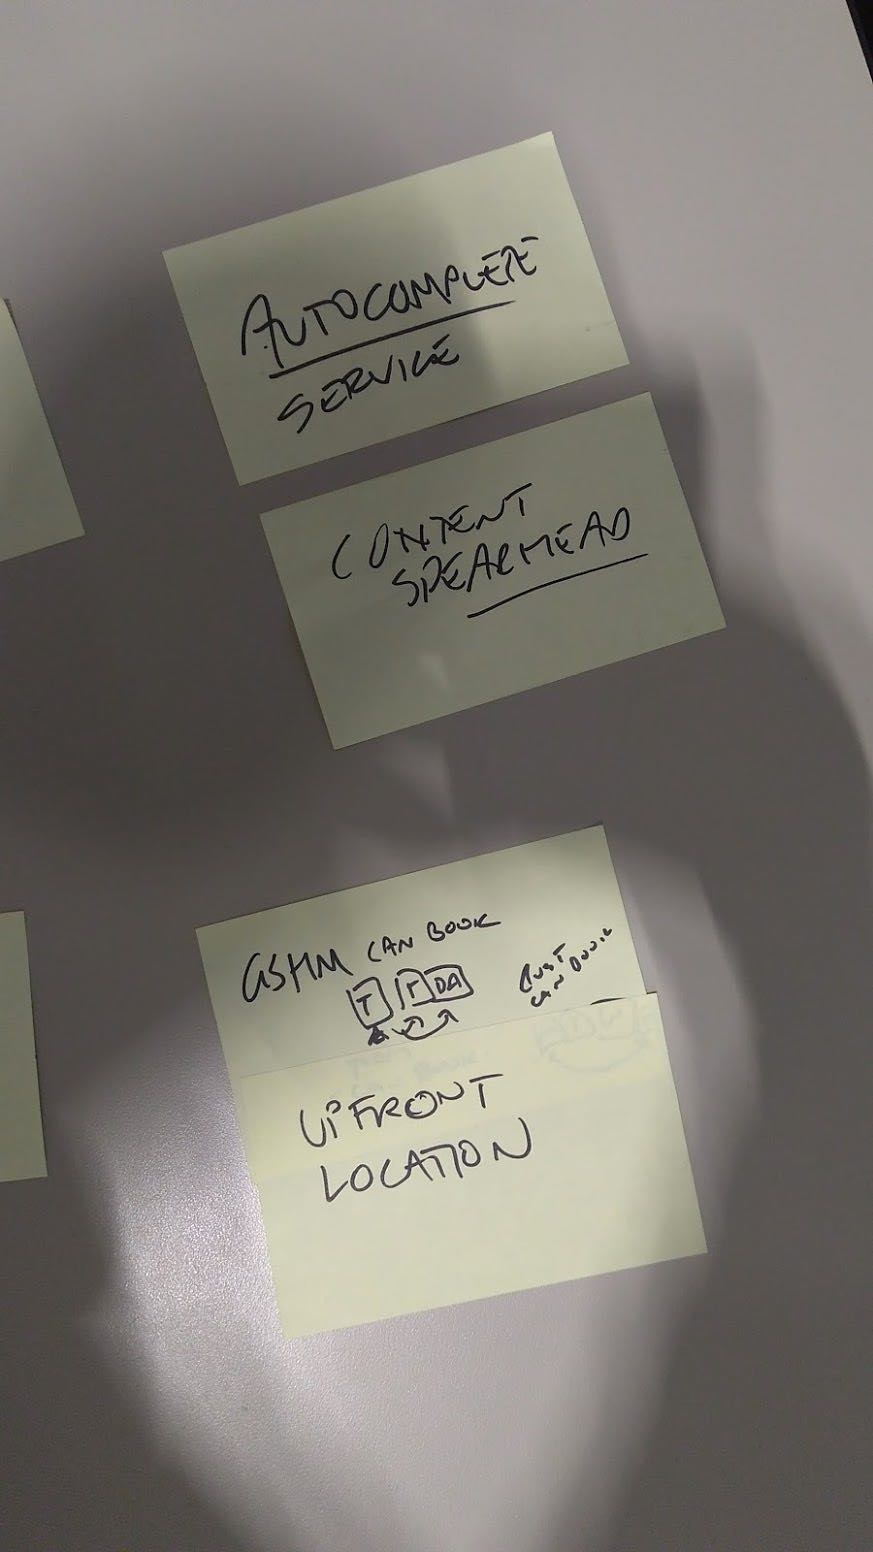 AUTOCOMPLETE
SERVICE
CONTENT
SPEARHEAD
CAN BOOK
T T DA
CAN BOOK
UPFRONT
LOCATION